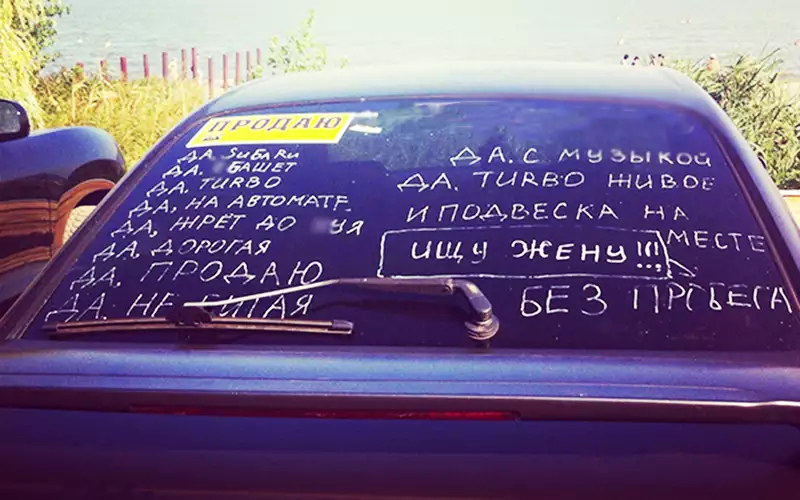 ПРОДАЮ
ДА. SUBARU
ДА. БАШЕТ
ДА. TURBO
ДА, НА АВТОМАТЕ
ДА, ЖРЁТ ДО УЯ
ДА. ДОРОГАЯ
ДА. ПРОДАЮ
ДА. НЕ БИТАЯ
ДА. С МУЗЫКОЙ
ДА. TURBO ЖИВОЕ
И ПОДВЕСКА НА
МЕСТЕ
ИЩУ ЖЕНУ!!!
БЕЗ ПРОБЕГА